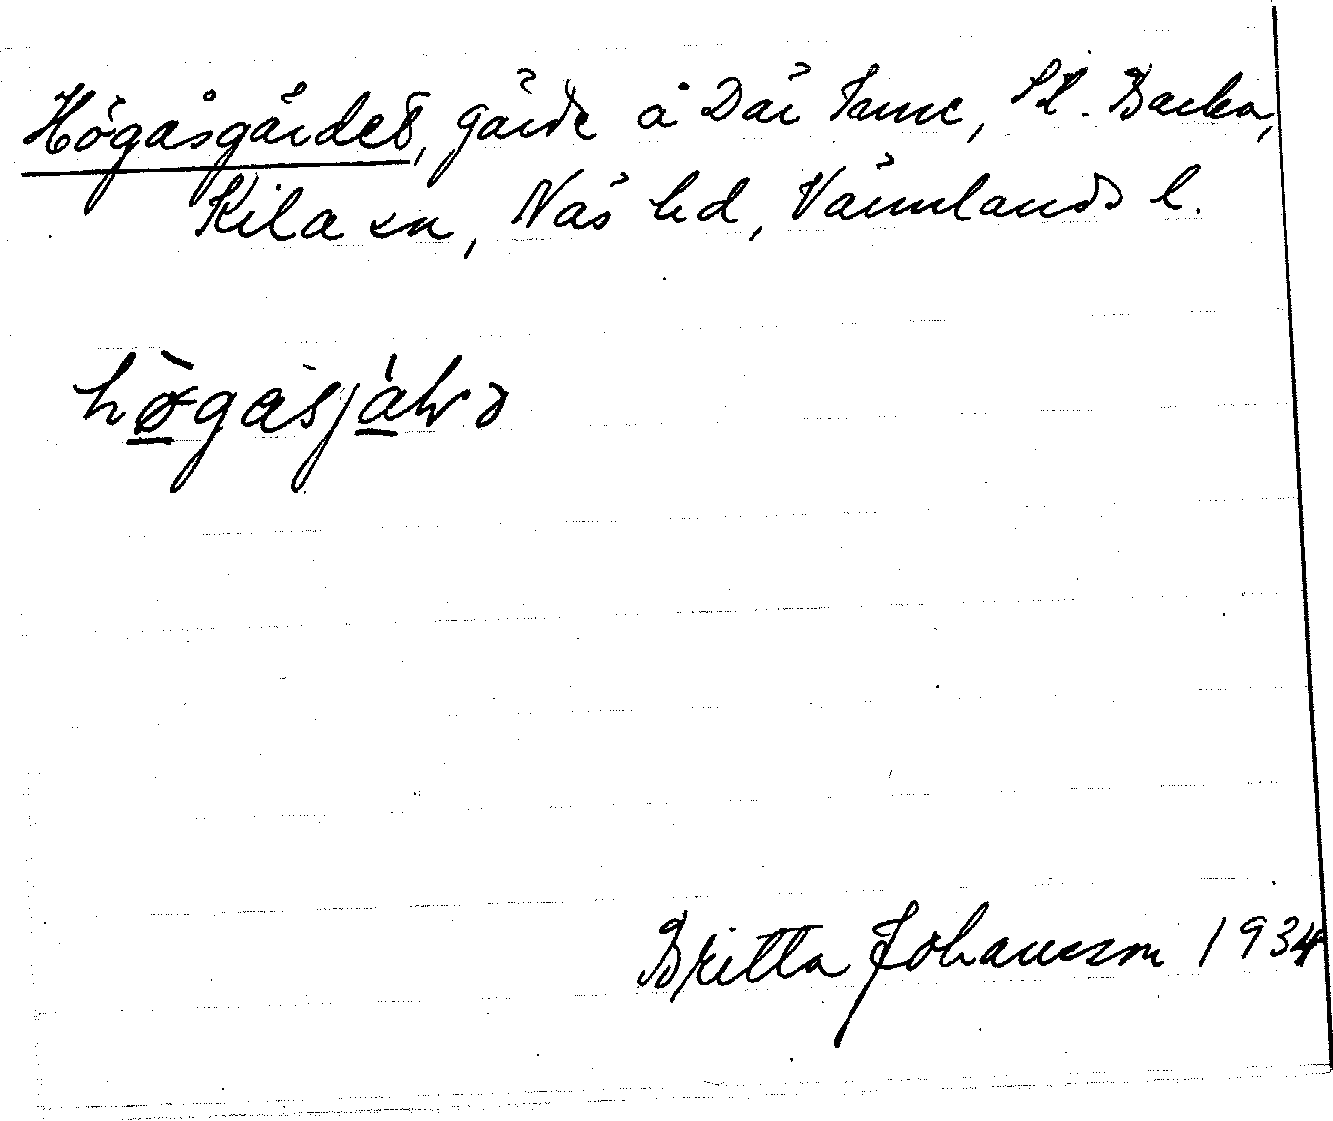 Högåsgärdet, gärde å Där Hame, St. Backa,
Kila sn, Näs hd, Värmlands l.
hø̀gåsjálrə
Britta Johansson 1934